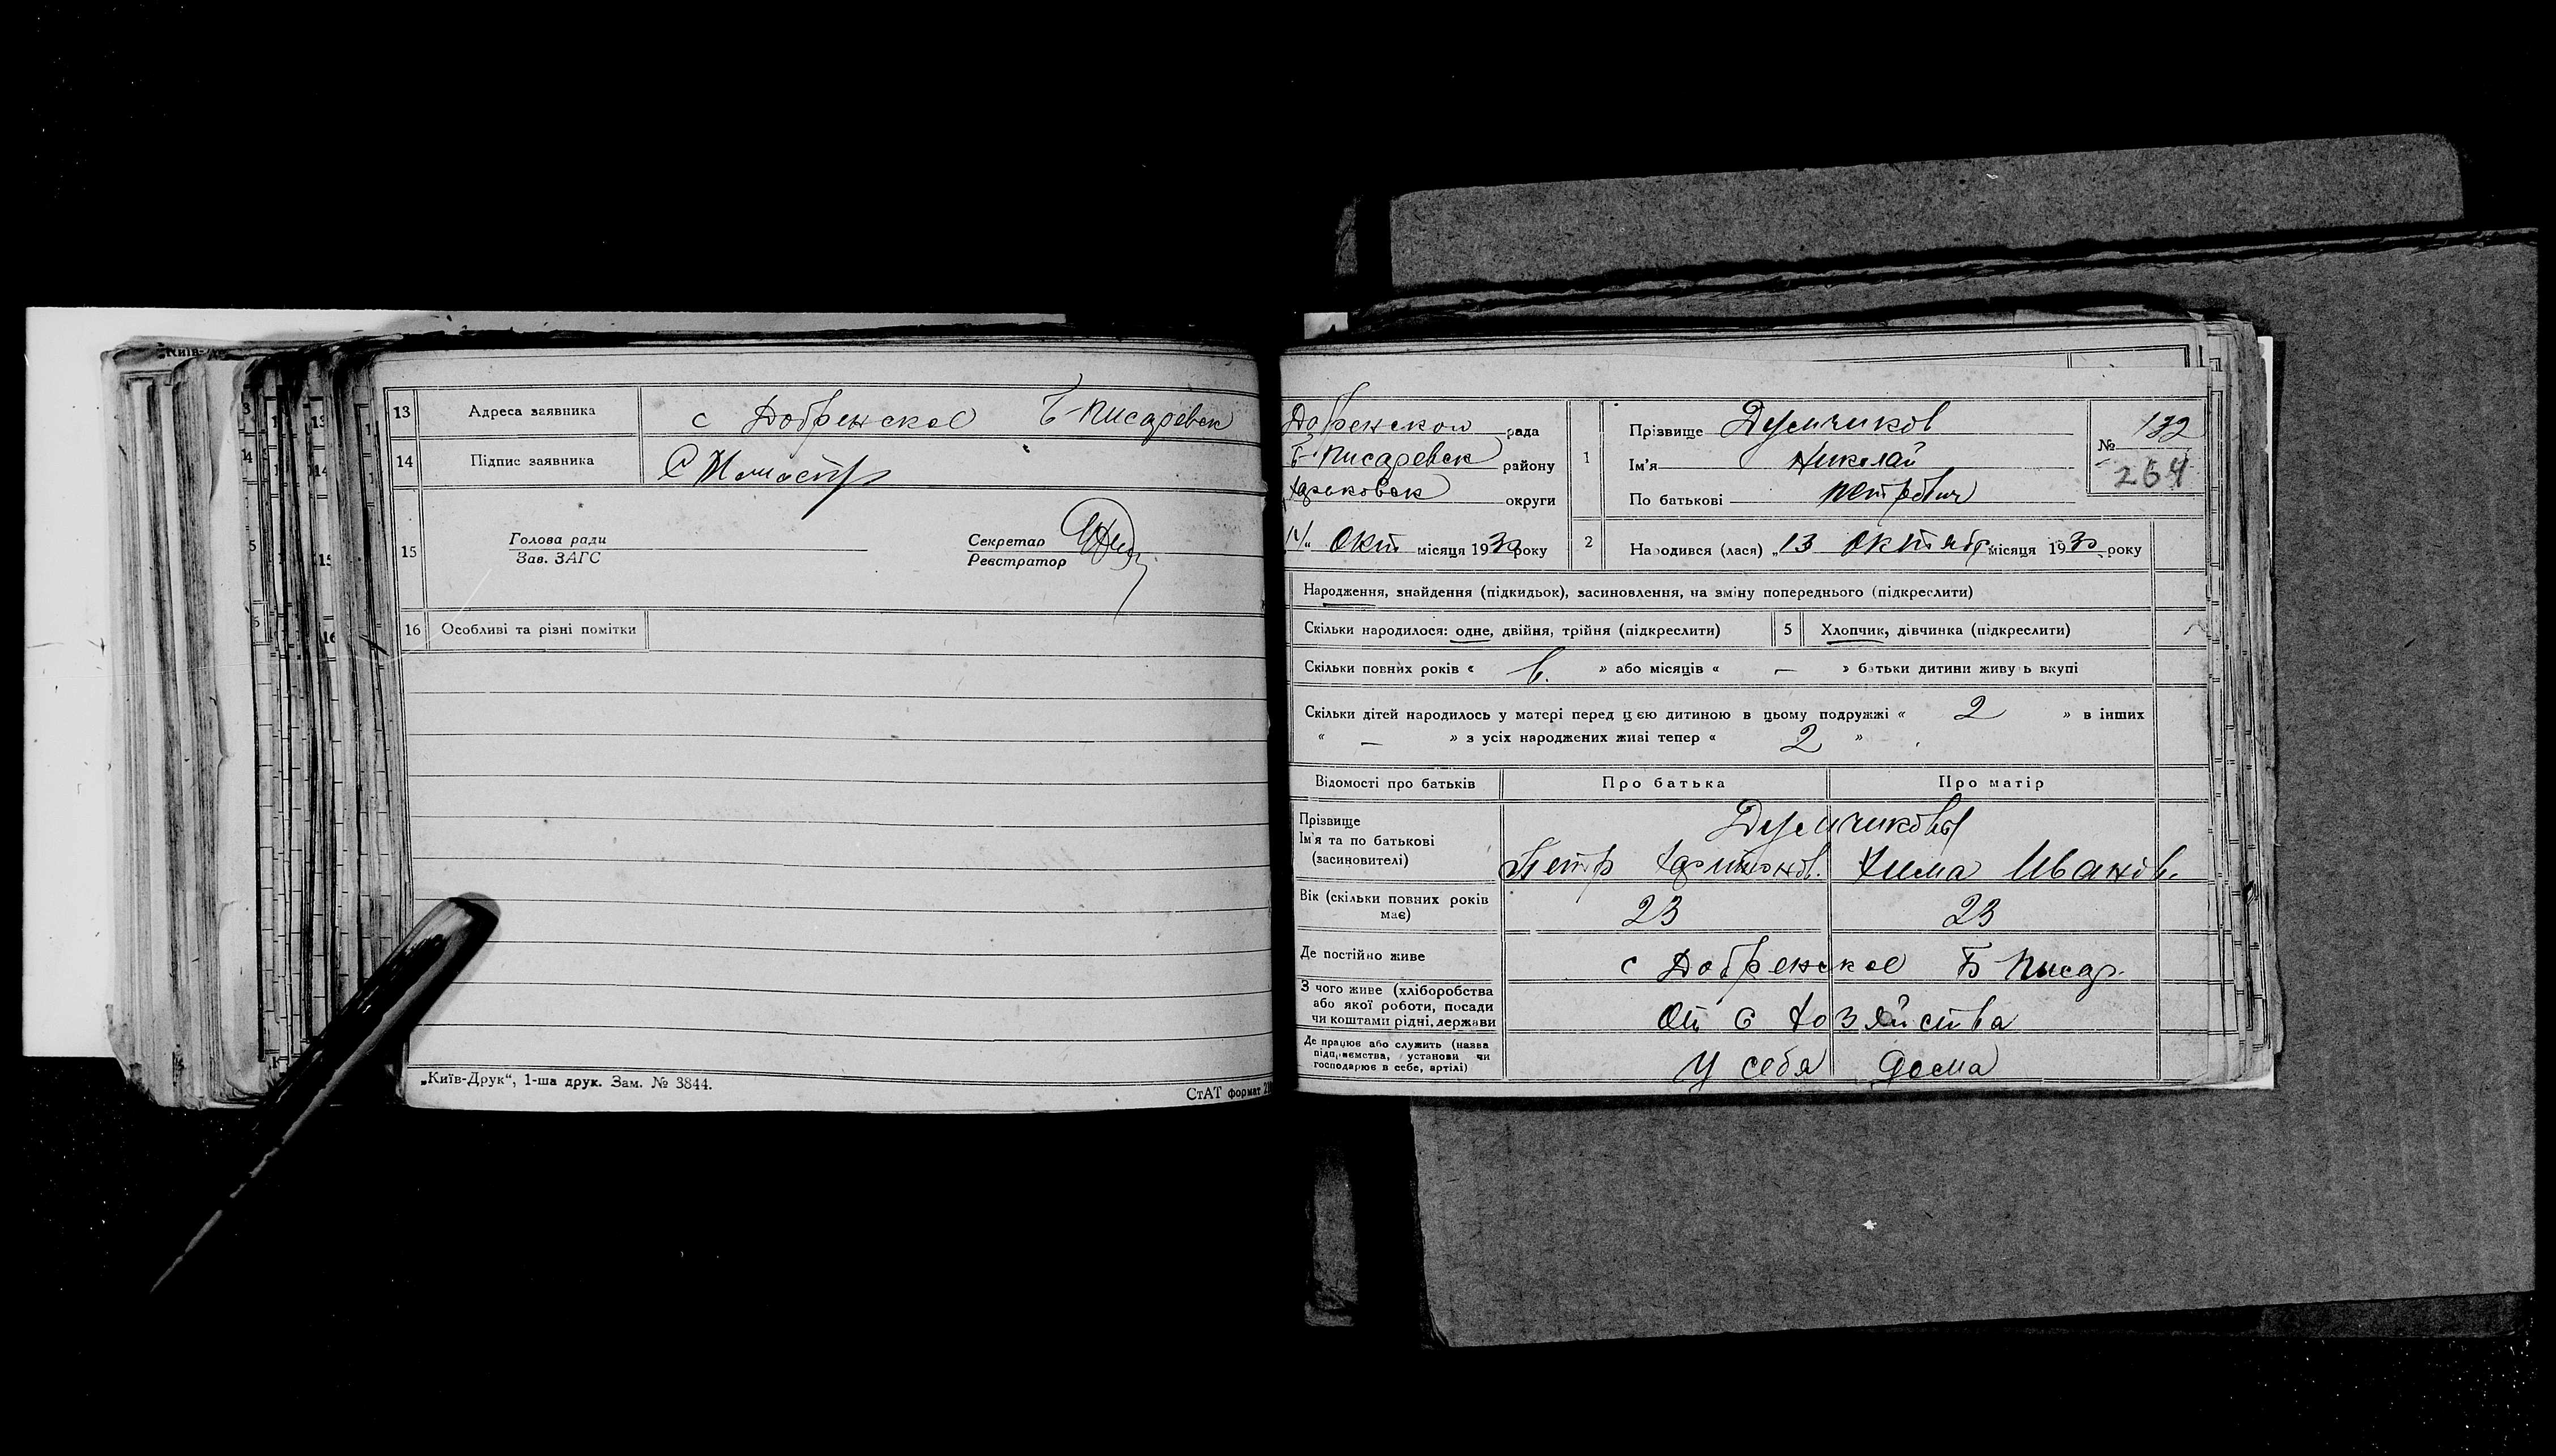 13 Адреса заявника с Добренское Б-Писаревск
14 Підпис заявника
15 Голова ради Секретар
Зав. ЗАГС Реєстратор
16 Особливі та різні помітки
„Київ-Друк“, 1-ша друк. Зам. № 3844.
СтАТ формат
Добренской рада
Б-Писаревск району
Харьковск округи
14 Окт місяця 1930 року
1 Прізвище
Ім'я Николай
По батькові Петрович
№ 132
264
2 Народився (лася) „13 Октябр місяця 1930 року
Народження, знайдення (підкидьок), засиновлення, на зміну попереднього (підкреслити)
Скільки народилося: одне, двійня, трійня (підкреслити) 5 Хлопчик, дівчинка (підкреслити)
Скільки повних років « 6. » або місяців « — » батьки дитини живуть вкупі
Скільки дітей народилось у матері перед цією дитиною в цьому подружжі « 2 » в інших
« — » з усіх народжених живі тепер « 2 »
Відомості про батьків Про батька Про матір
Прізвище
Ім'я та по батькові
(засиновителі)
Петр Харитонов. Хима Иванов.
Вік (скільки повних років
має)
23 23
Де постійно живе с Добренское Б Писар.
З чого живе (хліборобства
або якої роботи, посади
чи коштами рідні, держави
От с хозяйства
Де працює або служить (назва
підприємства, установи чи
господарює в себе, артілі)
У себя дома